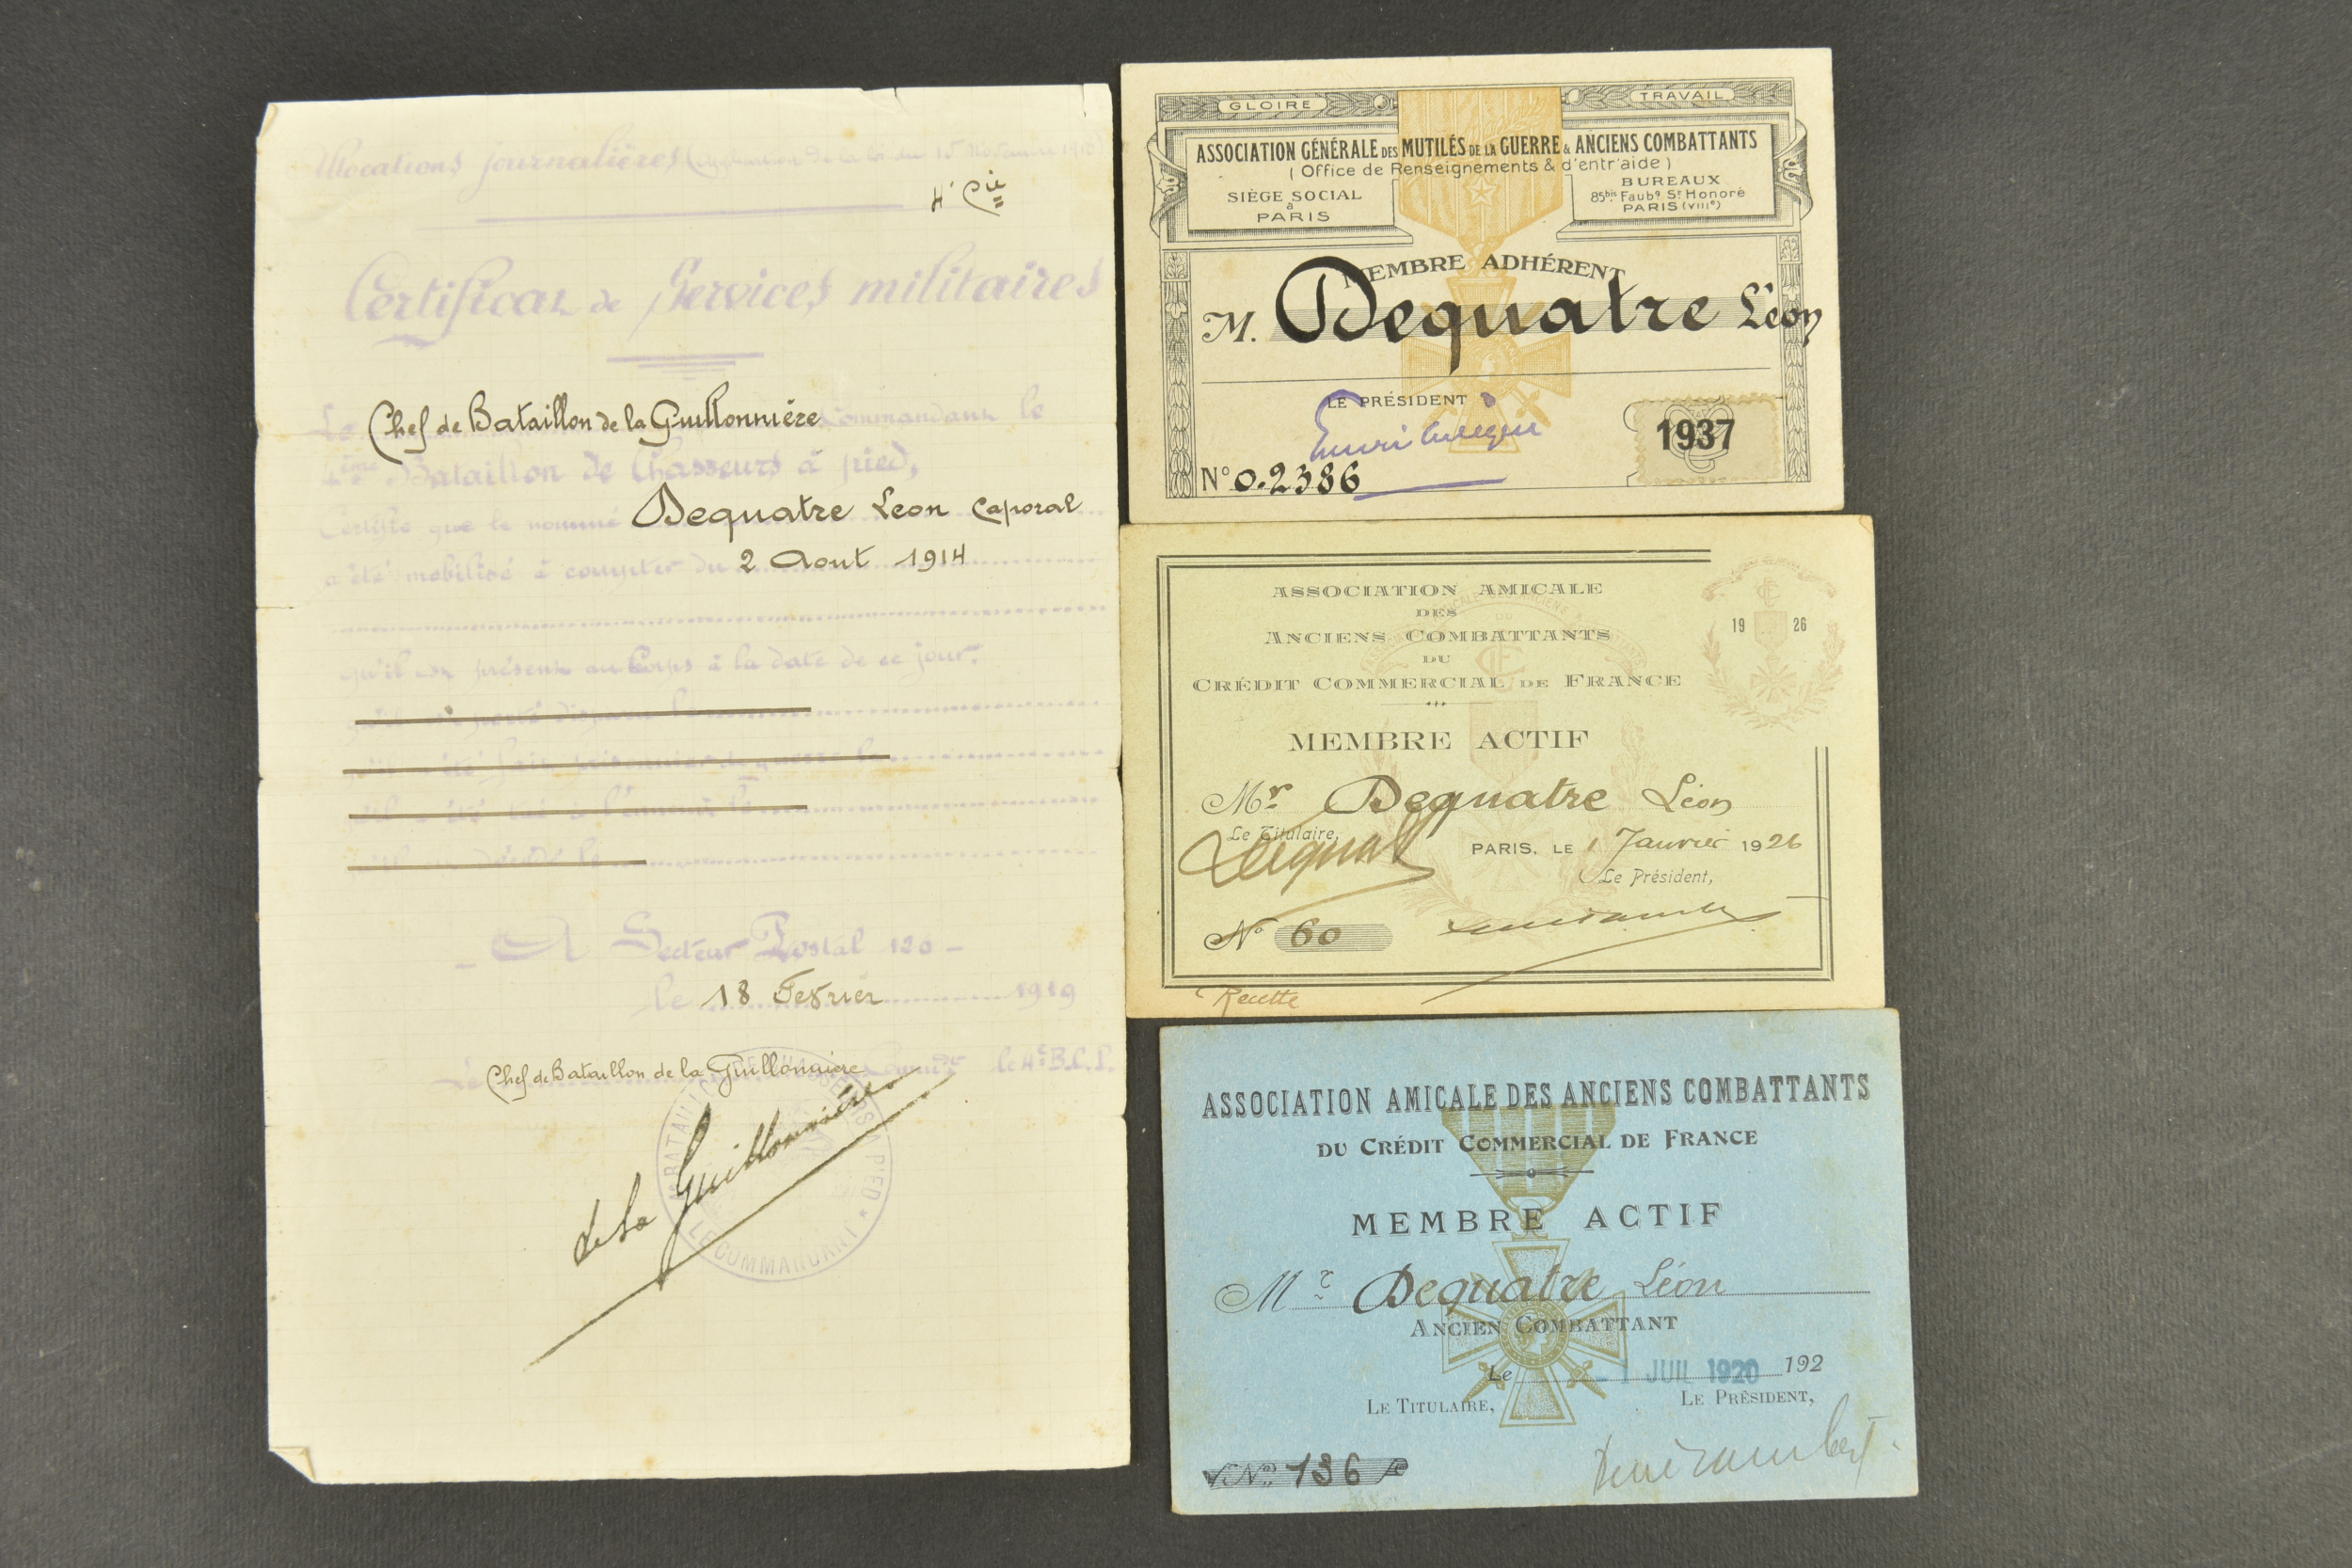 Allocations journalières (Application de la loi du 15 Novembre 1918)
4e Cie
Certificat de Services militaires
Le Chef de Bataillon de la Guillonnière Commandant le
4ème Bataillon de Chasseurs à pied,
Certifie que le nommé Dequatre Leon Caporal
a été mobilisé à compter du 2 Aout 1914
qu'il est présent au Corps à la date de ce jour.
A Secteur Postal 120 -
le 18 Fevrier 1919
Le Chef de Bataillon de la Guillonnière Commdt le 4e B.C.P.
BATAILLON DE CHASSEURS A PIED * LE COMMANDANT
de la Guillonnière
GLOIRE TRAVAIL
ASSOCIATION GÉNÉRALE DES MUTILÉS DE LA GUERRE & ANCIENS COMBATTANTS
(Office de Renseignements & d'entr'aide)
SIÈGE SOCIAL
à
PARIS
BUREAUX
85bis Faubg St Honoré
PARIS (VIIIe)
MEMBRE ADHÉRENT
M. Dequatre Léon
LE PRÉSIDENT
1937
N° 0.2386
ASSOCIATION AMICALE
DES
ANCIENS COMBATTANTS
DU
CRÉDIT COMMERCIAL DE FRANCE
19 26
MEMBRE ACTIF
Mr Dequatre Léon
Le Titulaire,
Dequat
PARIS, LE 1 Janvier 1926
Le Président,
N° 60
Recette
ASSOCIATION AMICALE DES ANCIENS COMBATTANTS
DU CRÉDIT COMMERCIAL DE FRANCE
MEMBRE ACTIF
Mr Dequatre Léon
ANCIEN COMBATTANT
Le - 1 JUIL 1920 192
LE TITULAIRE, LE PRÉSIDENT,
No 136